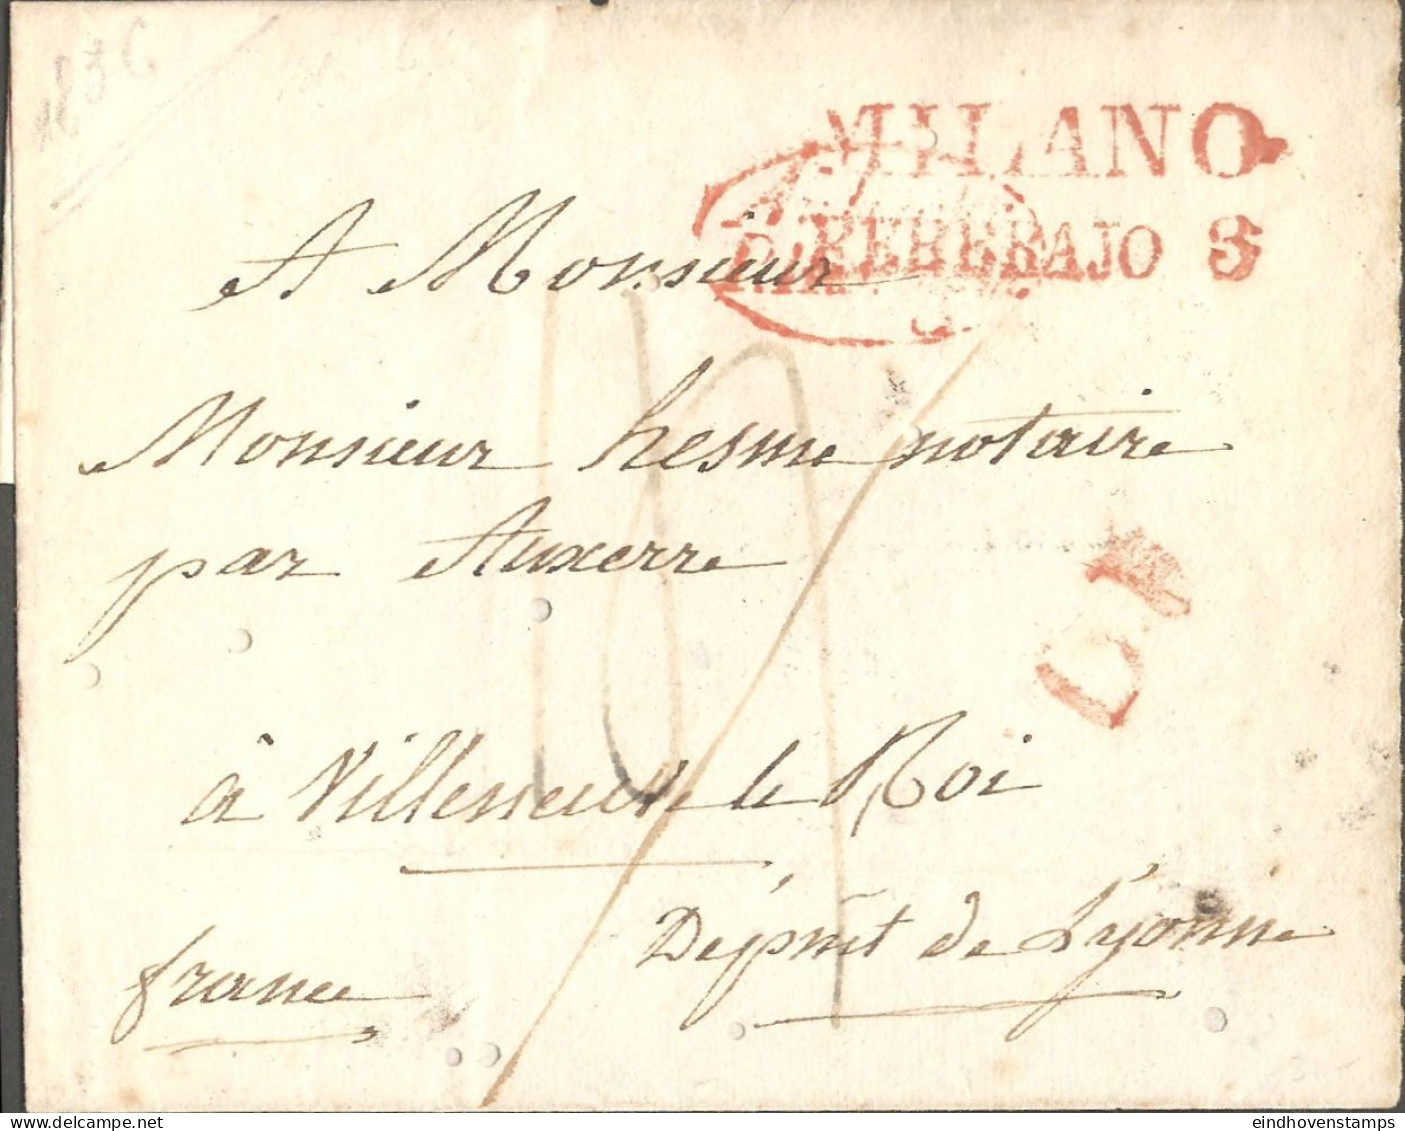 MILANO
FEBBRAJO 3
A Monsieur
Monsieur hesme notaire
par Auxerre
à Villeneuve le Roi
Départ de Lyonne
france
LT
eindhovenstamps